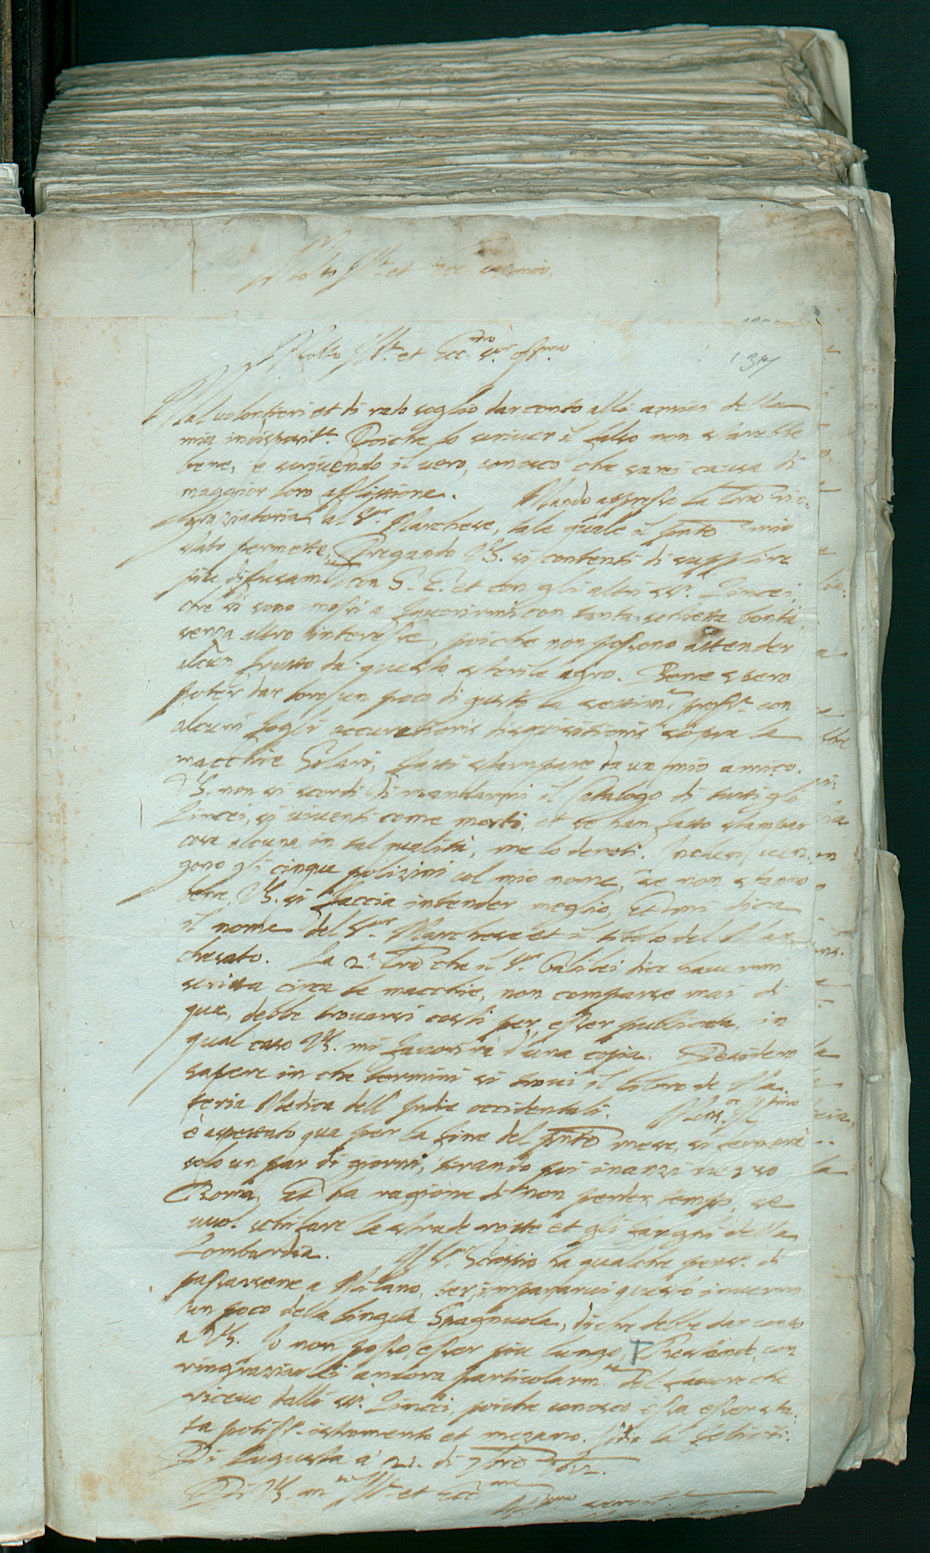 Molto Ill.re et Ecc.
Molto Ill.re et Ecc.mo s.r oss.mo
137
Mal volontieri et di rado soglio dar conto alli amici della
mia indisposit.e Poiche se scriver il falso non starebbe
bene, e scrivendo il vero, conosco che sarei causa di
maggior loro afflittione. Mando appresso la lra rin-
gratiatoria al S.or Marchese, tale quale il pnte mio
stato permette, Pregando VS. si contenti di supplire
più difusam.te con S. E. et con gli altri ss.ri Lincei,
che si sono mossi a favorirmi con tanta schietta bontà
senza altro interesse, poiche non possono attender
alcun frutto da questo sterile agro. Bene spero
poter dar loro un poco di gusto la settim.a pross.a con
alcuni fogli accuratioris disquisitionis sopra le
macchie Solari, fatti stampare da un mio amico.
VS. non si scordi di mandarmi il Catalogo di tutti gli
Lincei, si viventi come morti, et se han fatto stampar
cosa alcuna in tal qualità, me lo denoti. ven-
gono gli cinque polizini col mio nome, se non stanno
bene, VS. si faccia intender meglio, Et mi dica
il nome del S.or Marchese et il titolo del Mar-
chesato. La 2.a lra che il S.r Galilei dice haver
scritta circa le macchie, non comparse mai di
qua, debbe trovarsi costì per esser publicata, in
qual caso VS. mi favorirà d'una copia. Desidero
sapere in che termini si trovi il libro de Ma-
teria Medica dell' Indie occidentali. Mons.r Ill.mo
è aspettato qua per la fine del pnte mese, si fermerà
solo un par di giorni, tirando poi inanzi verso
Roma, Et ha ragione di non perder tempo, se
vuol schifare le strade rotte et gli fanghi della
Lombardia. Il S.r ha qualche pens.o di
passarsene a Milano, per impararvi questo inverno
un poco della lingua Spagnuola, di che debbe dar conto
a VS. Io non posso esser più lungo,
ringratiar lei ancora particolarm.te del favore che
ricevo dalli ss.ri Lincei, poiche conosco essa esser sta-
ta potiss.o istromento et mezano. Iddio la feliciti.
Di Augusta a' 21. di 7bre 1612.
Di VS. m.to Ill.re et Ecc.ma